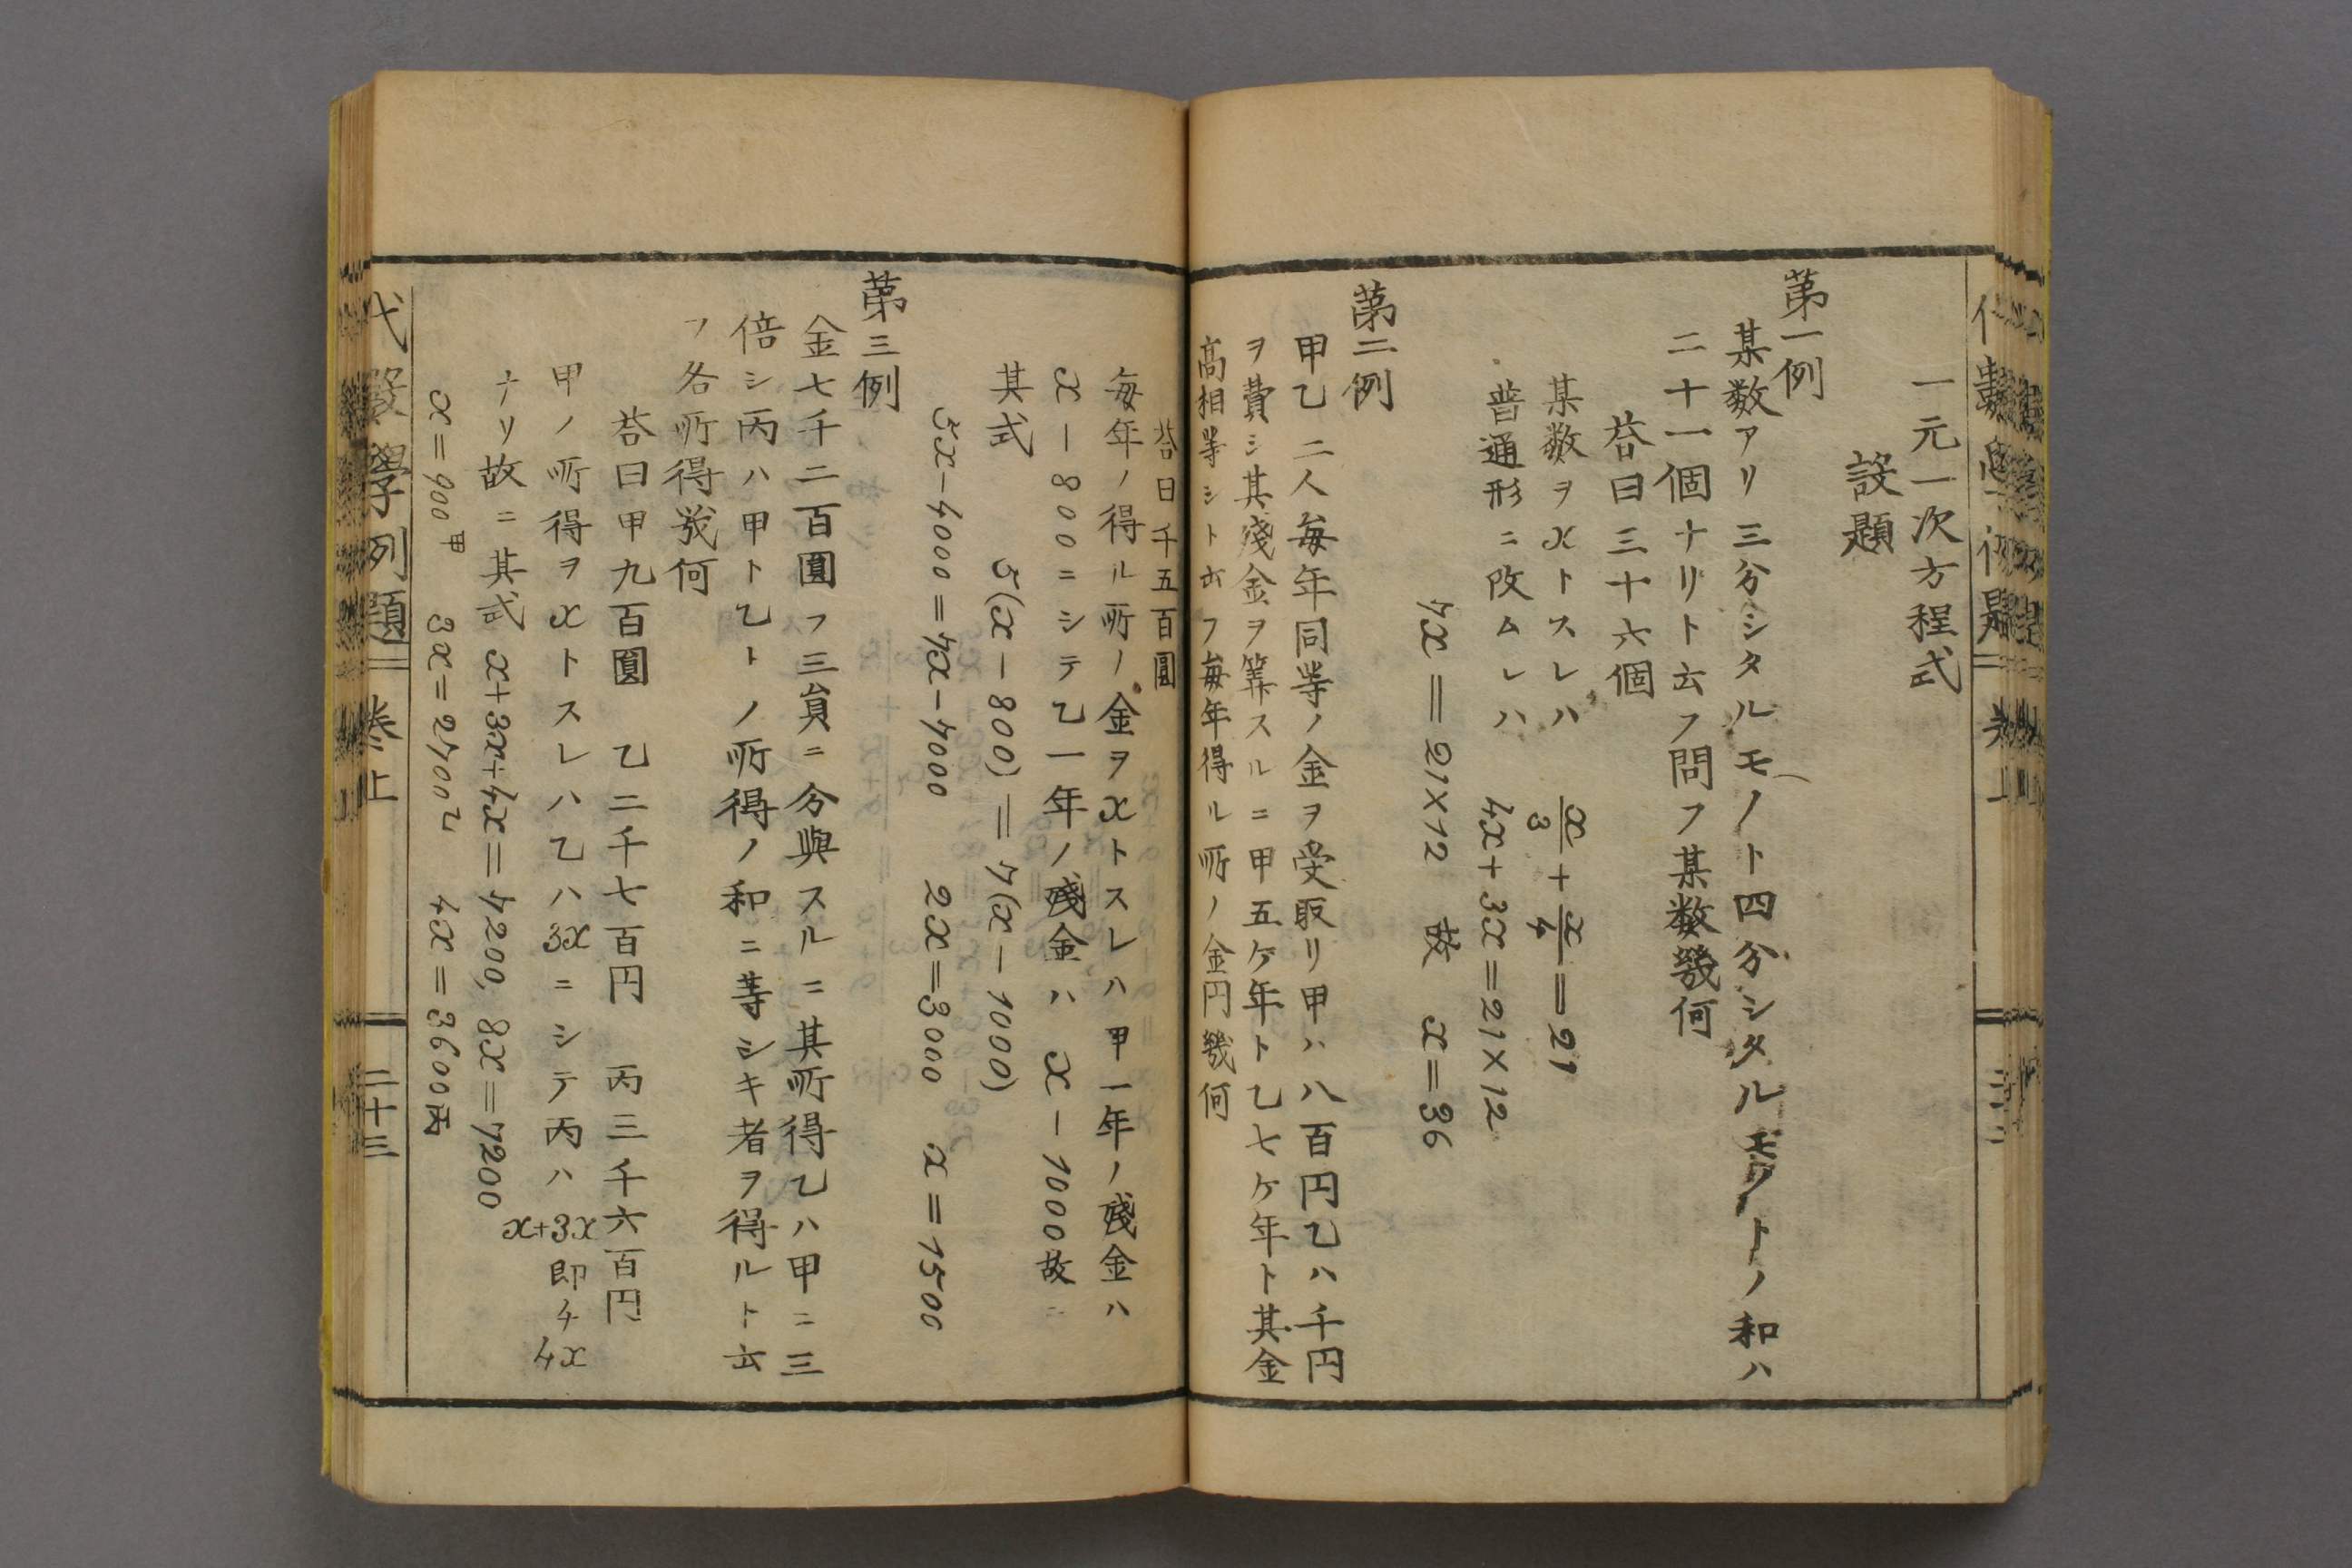 一元一次方程式
設題
第一例
某数アリ三分シタルモノト四分シタルモノトノ和ハ
二十一個ナリト云フ問フ某数幾何
荅曰三十六個
某数ヲxトスレハ x/3+x/4=21
普通形ニ改ムレハ 4x+3x=21×12
7x=21×12 故 x=36
第二例
甲乙二人毎年同等ノ金ヲ受取リ甲ハ八百円乙ハ千円
ヲ費シ其殘金ヲ筭スルニ甲五ケ年ト乙七ケ年ト其金
高相等シト云フ毎年得ル所ノ金円幾何
荅曰千五百圓
毎年ノ得ル所ノ金ヲxトスレハ甲一年ノ殘金ハ
x-800ニシテ乙一年ノ殘金ハ x-1000故ニ
其式 5(x-800)=7(x-1000)
5x-4000=7x-7000 2x=3000 x=1500
第三例
金七千二百圓ヲ三員ニ分與スルニ其所得乙ハ甲ニ三
倍シ丙ハ甲ト乙トノ所得ノ和ニ等シキ者ヲ得ルト云
フ各所得幾何
荅曰甲九百圓 乙二千七百円 丙三千六百円
甲ノ所得ヲxトスレハ乙ハ3xニシテ丙ハx+3x即チ4x
ナリ故ニ其式 x+3x+4x=7200, 8x=7200
x=900甲 3x=2700乙 4x=3600丙
代数學例題 巻上 二十三